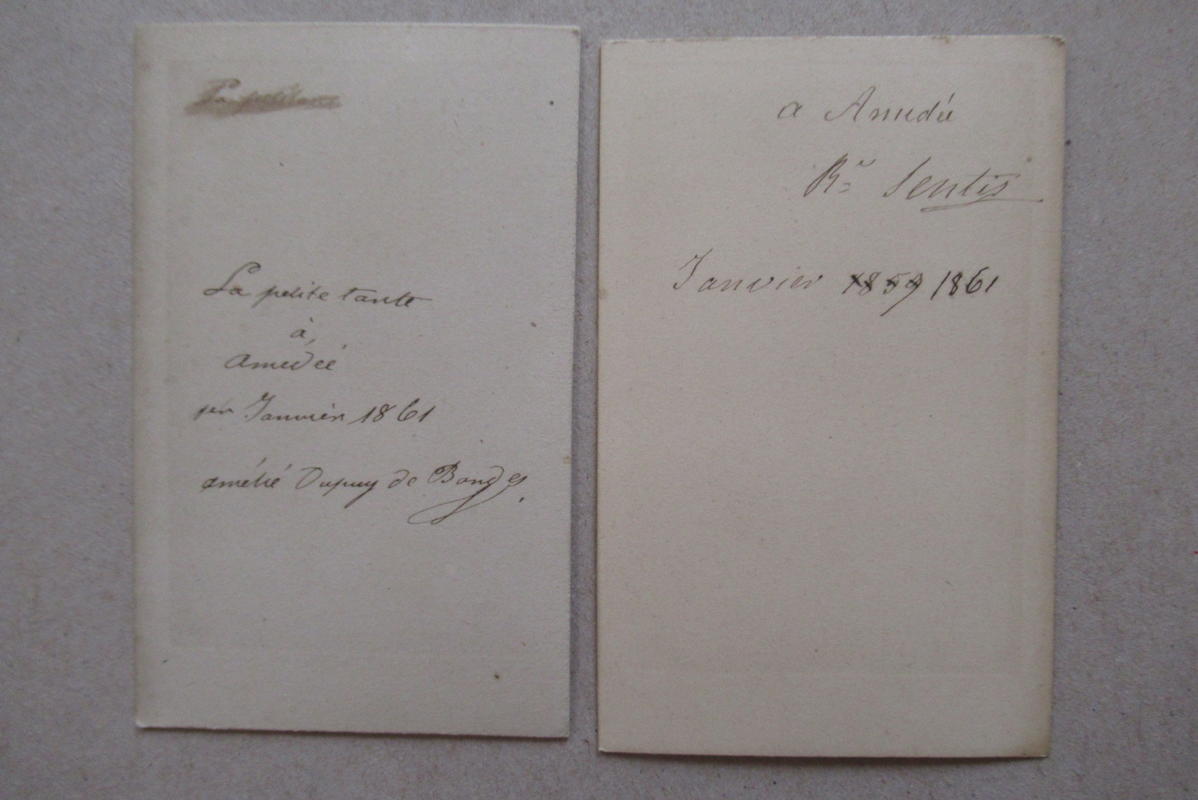 La petite tante
La petite tante
à
amedée
1er Janvier 1861
amélie Dupuy de Bordes
a Amedée
Rne Sentis
Janvier 1859 1861